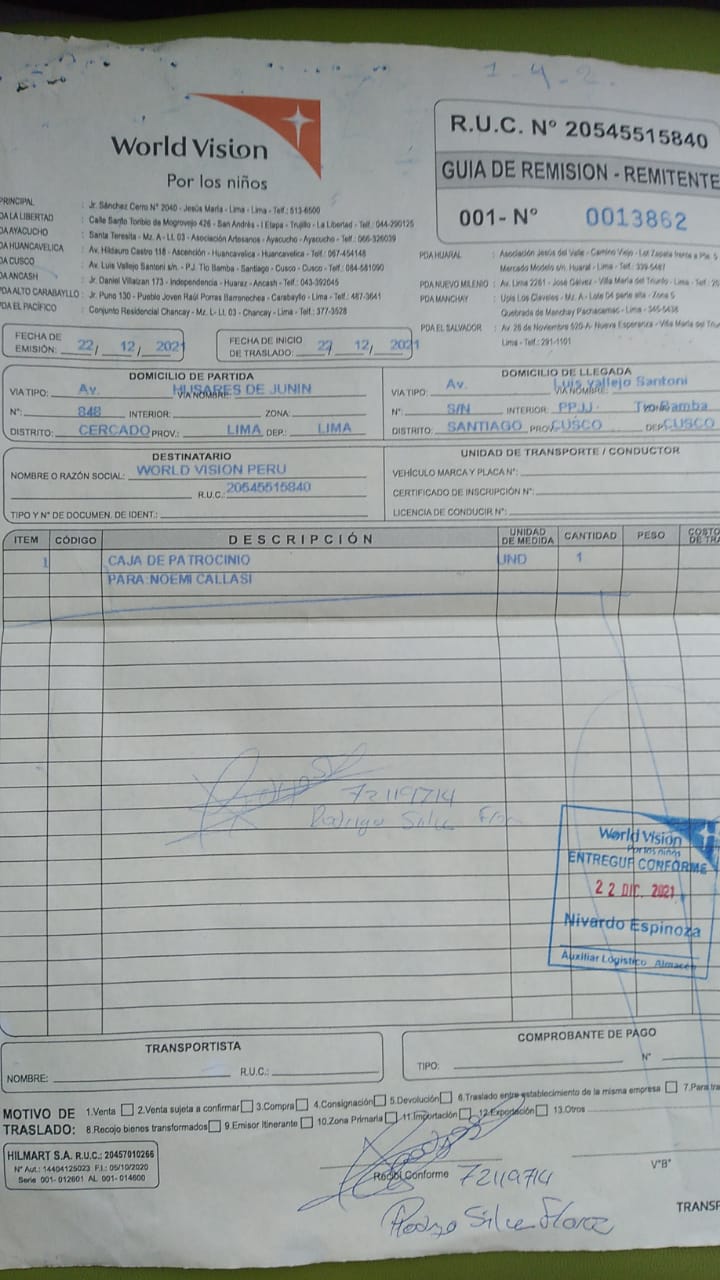 World Vision
Por los niños
R.U.C. Nº 20545515840
GUIA DE REMISION - REMITENTE
001- Nº 0013862
PRINCIPAL : Jr. Sánchez Cerro Nº 2040 - Jesús María - Lima - Lima - Telf.: 513-6500
DA LA LIBERTAD : Calle Santo Toribio de Mogrovejo 426 - San Andrés - I Etapa - Trujillo - La Libertad - Telf.: 044-290125
DA AYACUCHO : Santa Teresita - Mz. A - Lt. 03 - Asociación Artesanos - Ayacucho - Ayacucho - Telf.: 066-326039
DA HUANCAVELICA : Av. Hildauro Castro 118 - Ascención - Huancavelica - Huancavelica - Telf.: 067-454148
DA CUSCO : Av. Luis Vallejo Santoni s/n. - P.J. Tío Bamba - Santiago - Cusco - Cusco - Telf.: 084-581090
DA ANCASH : Jr. Daniel Villaizan 173 - Independencia - Huaraz - Ancash - Telf.: 043-392045
DA ALTO CARABAYLLO : Jr. Puno 130 - Pueblo Joven Raúl Porras Barrenechea - Carabayllo - Lima - Telf.: 487-3641
PDA EL PACÍFICO : Conjunto Residencial Chancay - Mz. L- Lt. 03 - Chancay - Lima - Telf.: 377-3528
PDA HUARAL : Asociación Jesús del Valle - Camino Viejo - Lot Zapata frente a Pte. 5
Mercado Modelo s/n. Huaral - Lima - Telf.: 339-5487
PDA NUEVO MILENIO : Av. Lima 2261 - José Gálvez - Villa María del Triunfo - Lima - Telf.:
PDA MANCHAY : Upis Los Claveles - Mz. A - Lote 04 parte alta - Zona 5
Quebrada de Manchay Pachacamac - Lima - 345-5438
PDA EL SALVADOR : Av. 26 de Noviembre 620-A- Nueva Esperanza - Villa María del
Lima - Telf.: 291-1101
FECHA DE EMISIÓN: 22/ 12/ 2021
FECHA DE INICIO DE TRASLADO: 22/ 12/ 2021
DOMICILIO DE PARTIDA
VIA TIPO: Av. VIA NOMBRE: HUSARES DE JUNIN
Nº: 848 INTERIOR: ZONA:
DISTRITO: CERCADO PROV.: LIMA DEP.: LIMA
DOMICILIO DE LLEGADA
VIA TIPO: Av. VIA NOMBRE: Luis Vallejo Santoni
Nº: S/N INTERIOR: PPJJ Tio Bamba
DISTRITO: SANTIAGO PROV: CUSCO DEP: CUSCO
DESTINATARIO
NOMBRE O RAZÓN SOCIAL: WORLD VISION PERU
R.U.C. 20545515840
TIPO Y Nº DE DOCUMEN. DE IDENT.:
UNIDAD DE TRANSPORTE / CONDUCTOR
VEHÍCULO MARCA Y PLACA Nº:
CERTIFICADO DE INSCRIPCIÓN Nº:
LICENCIA DE CONDUCIR Nº:
ITEM CÓDIGO DESCRIPCIÓN UNIDAD DE MEDIDA CANTIDAD PESO COSTO
1 CAJA DE PATROCINIO UND 1
PARA: NOEMI CALLASI
72119714
Rodrigo Silva
World Visión
Por los niños
ENTREGUE CONFORME
22 DIC. 2021
Nivardo Espinoza
Auxiliar Logístico Almacén
TRANSPORTISTA
NOMBRE: R.U.C.:
COMPROBANTE DE PAGO
TIPO: Nº
MOTIVO DE TRASLADO: 1.Venta 2.Venta sujeta a confirmar 3.Compra 4.Consignación 5.Devolución 6.Traslado entre establecimiento de la misma empresa 7.Para
8.Recojo bienes transformados 9.Emisor Itinerante 10.Zona Primaria 11.Importación 12.Exportación 13.Otros
HILMART S.A. R.U.C.: 20457010266
Nº Aut.: 14404125023 F.I.: 05/10/2020
Serie 001- 012601 AL 001- 014600
Recibí Conforme 72119714
V°B°
Rodrigo Silva Florez
TRANSP